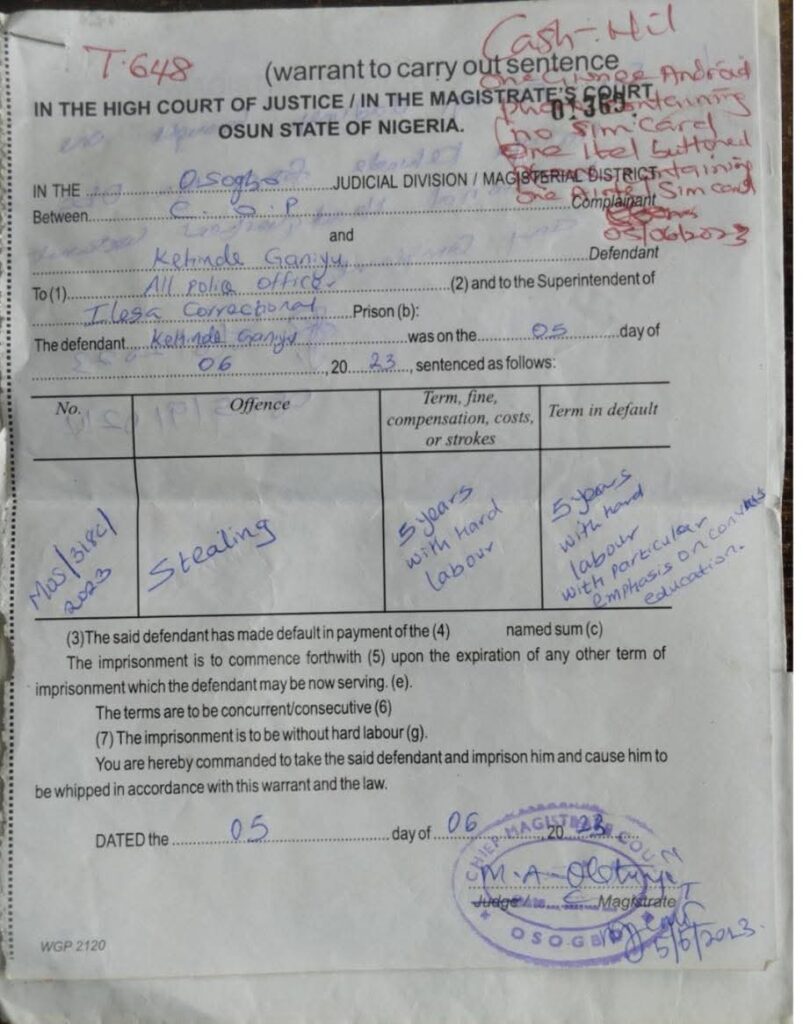 T.648
Cash - Nil
(warrant to carry out sentence
One Orange Android
IN THE HIGH COURT OF JUSTICE / IN THE MAGISTRATE'S COURT
phone containing
01365
OSUN STATE OF NIGERIA.
(no Sim card
One Itel buttoned
containing
one Airtel Sim card
05/06/2023
IN THE ..... Osogbo ..... JUDICIAL DIVISION / MAGISTERIAL DISTRICT
Between..... C.O.P ..... Complainant
and
Kehinde Ganiyu ..... Defendant
To (1)..... All police officer .....(2) and to the Superintendent of
Ilesa Correctional .....Prison (b):
The defendant..... Kehinde Ganiyu .....was on the..... 05 .....day of
06 ....., 20..23..., sentenced as follows:
No. Offence Term, fine, compensation, costs, or strokes Term in default
MOS/318C/ 2023 Stealing 5 years with Hard labour 5 years with hard labour with particular emphasis on convicts education.
(3)The said defendant has made default in payment of the (4) named sum (c)
The imprisonment is to commence forthwith (5) upon the expiration of any other term of
imprisonment which the defendant may be now serving. (e).
The terms are to be concurrent/consecutive (6)
(7) The imprisonment is to be without hard labour (g).
You are hereby commanded to take the said defendant and imprison him and cause him to
be whipped in accordance with this warrant and the law.
DATED the ..... 05 ..... day of ..06.....20 23
CHIEF MAGISTRATE COURT
M.A.
Judge / Magistrate
OSOGBO
5/6/2023.
WGP 2120